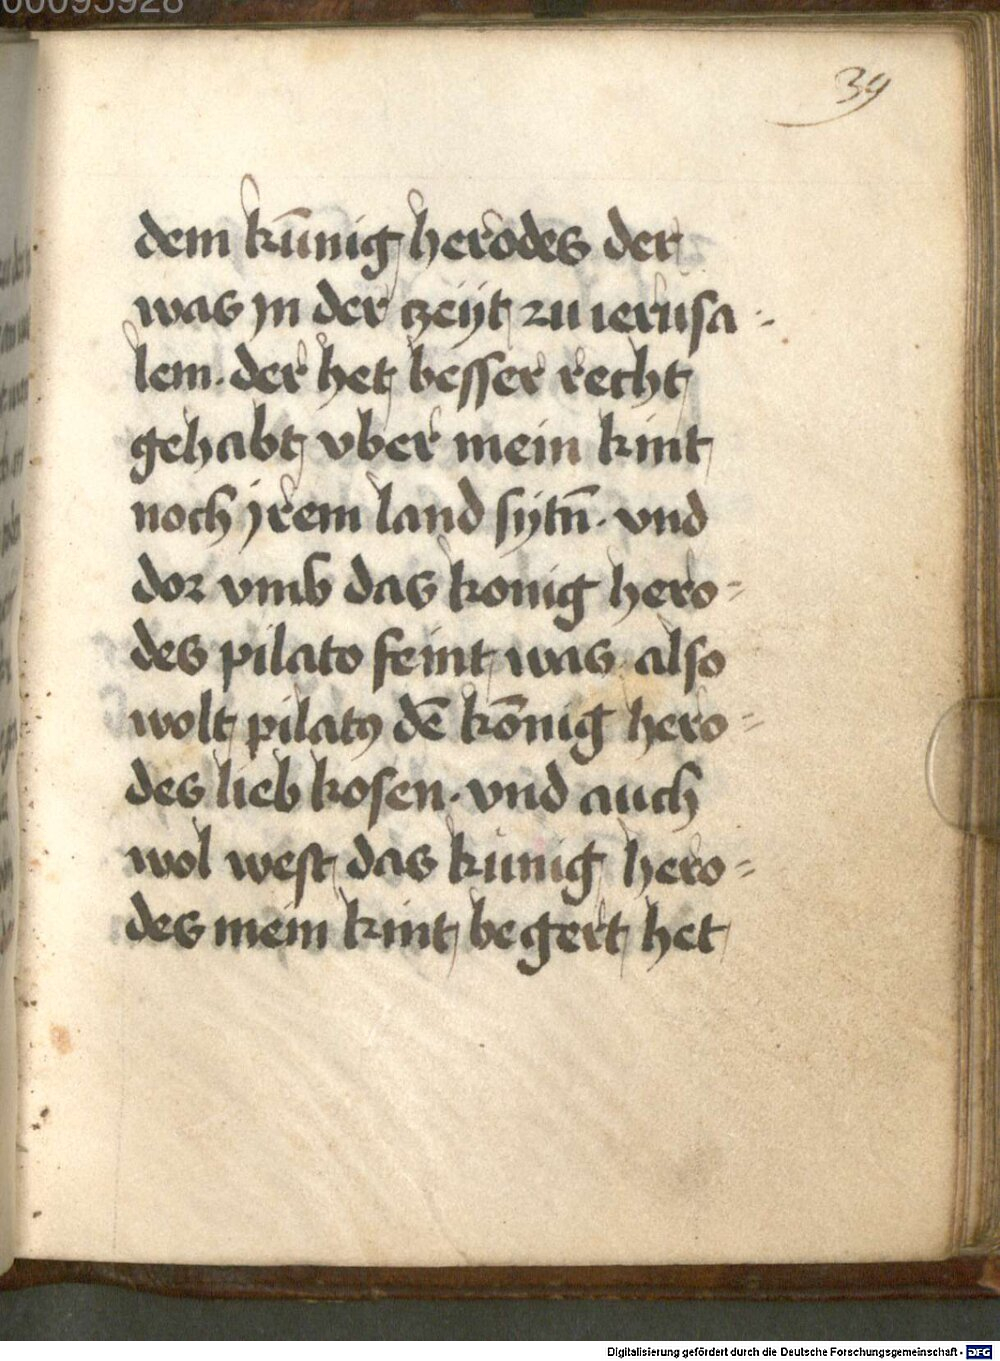 00095928
39
dem kūnig herodes der
was yn der czeijt zu ierusa-
lem. der het besser recht
gehabt vber mein kint
noch jrem land sijtn̄. vnd
dor vmb das konig hero-
des pilato feint was also
wolt pilatꝯ dē kōnig hero-
des lieb kosen. vnd auch
wol west das kunig hero-
des mein kint begert het
Digitalisierung gefördert durch die Deutsche Forschungsgemeinschaft - DFG